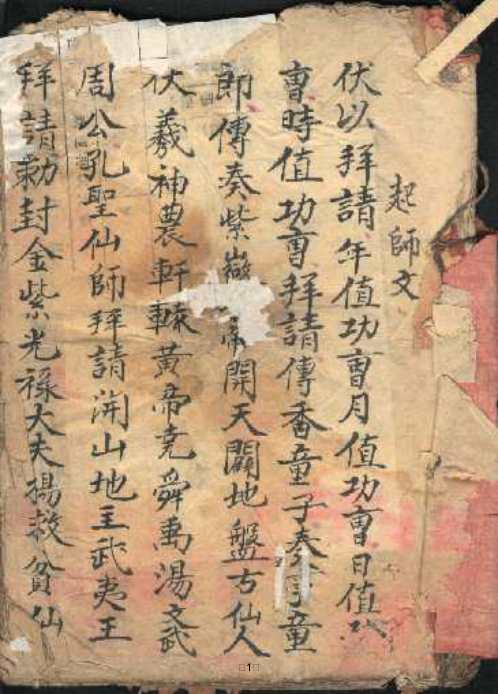 起師文
伏以拜請年值功曹月值功曹日值功
曹時值功曹拜請傳香童子奏童
即傳奏紫微帝開天闢地盤古仙人
伏羲神農軒轅黃帝堯舜禹湯文武
周公孔聖仙師拜請開山地主武夷王
拜請勅封金紫光祿大夫楊救貧仙
1